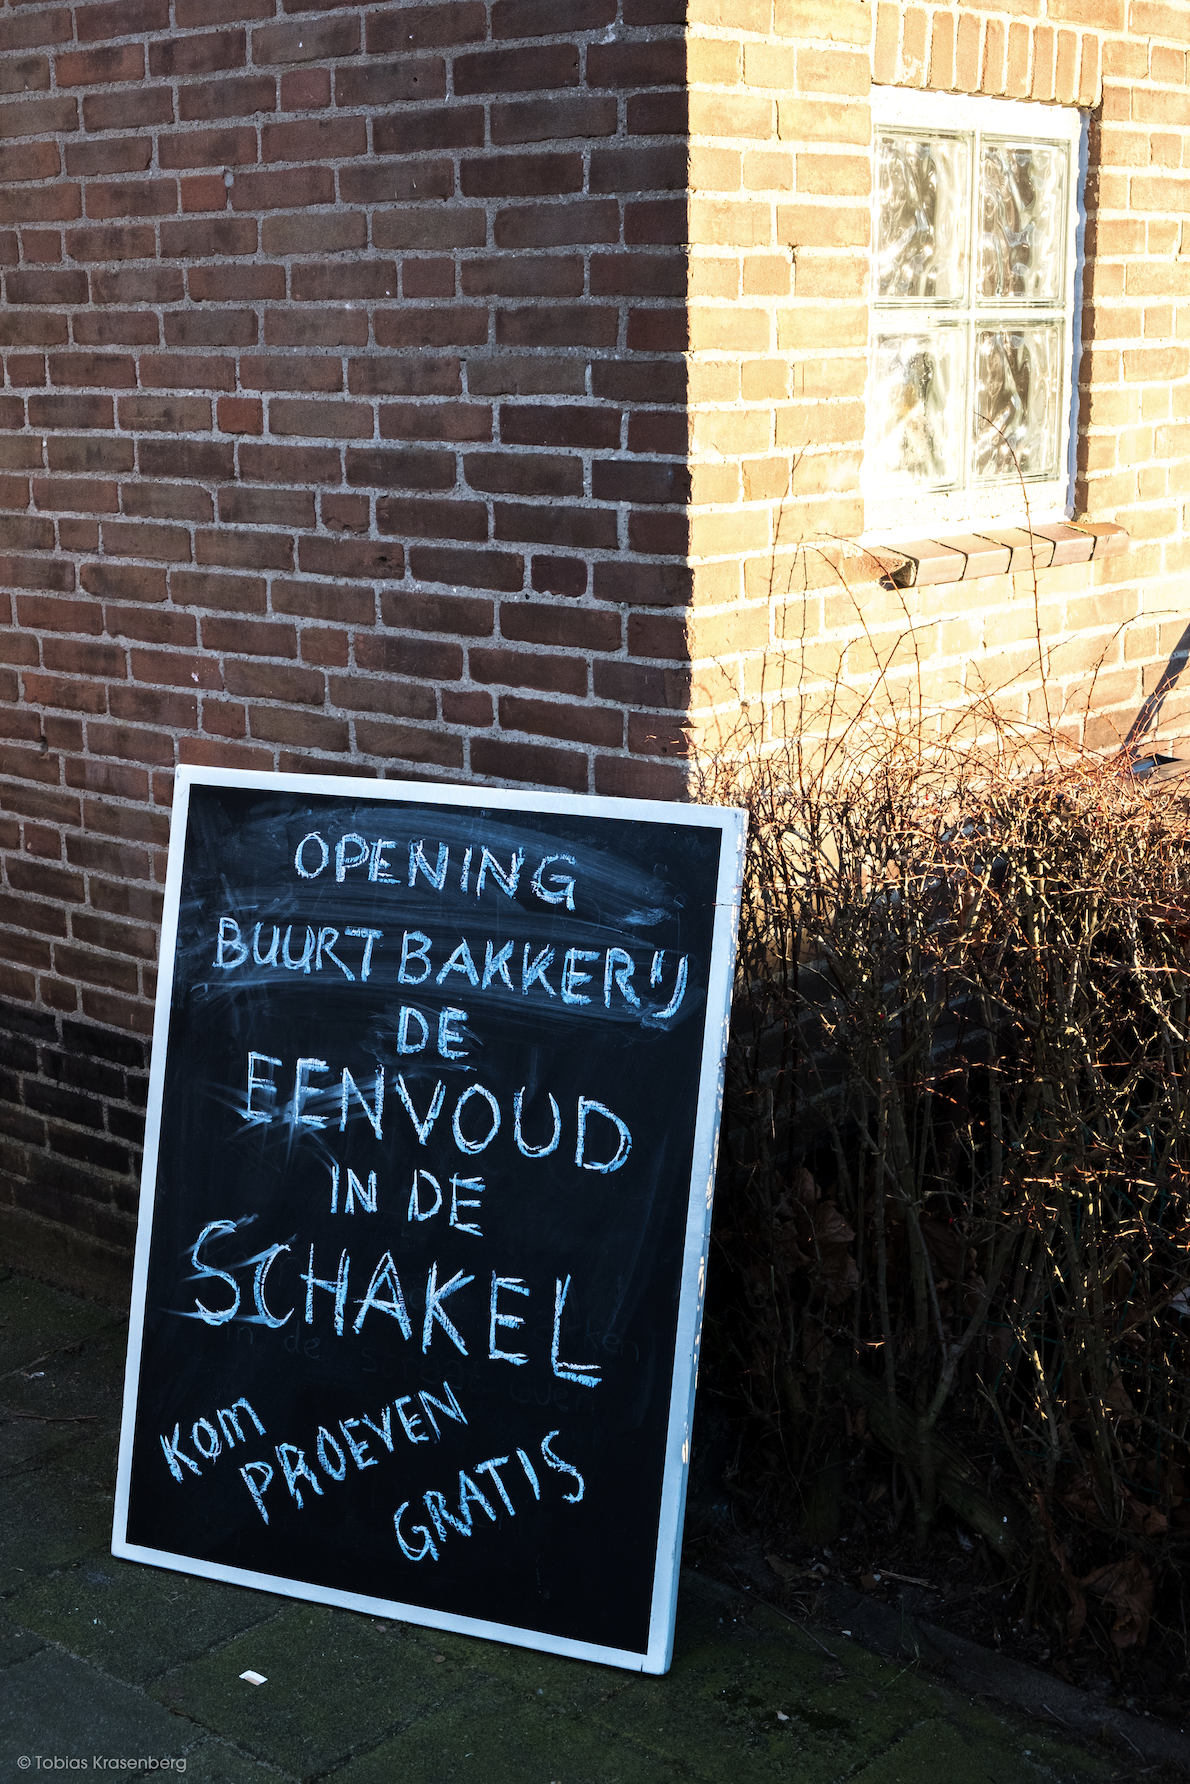 OPENING
BUURT BAKKERIJ
DE
EENVOUD
IN DE
SCHAKEL
KOM
PROEVEN
GRATIS
© Tobias Krasenberg